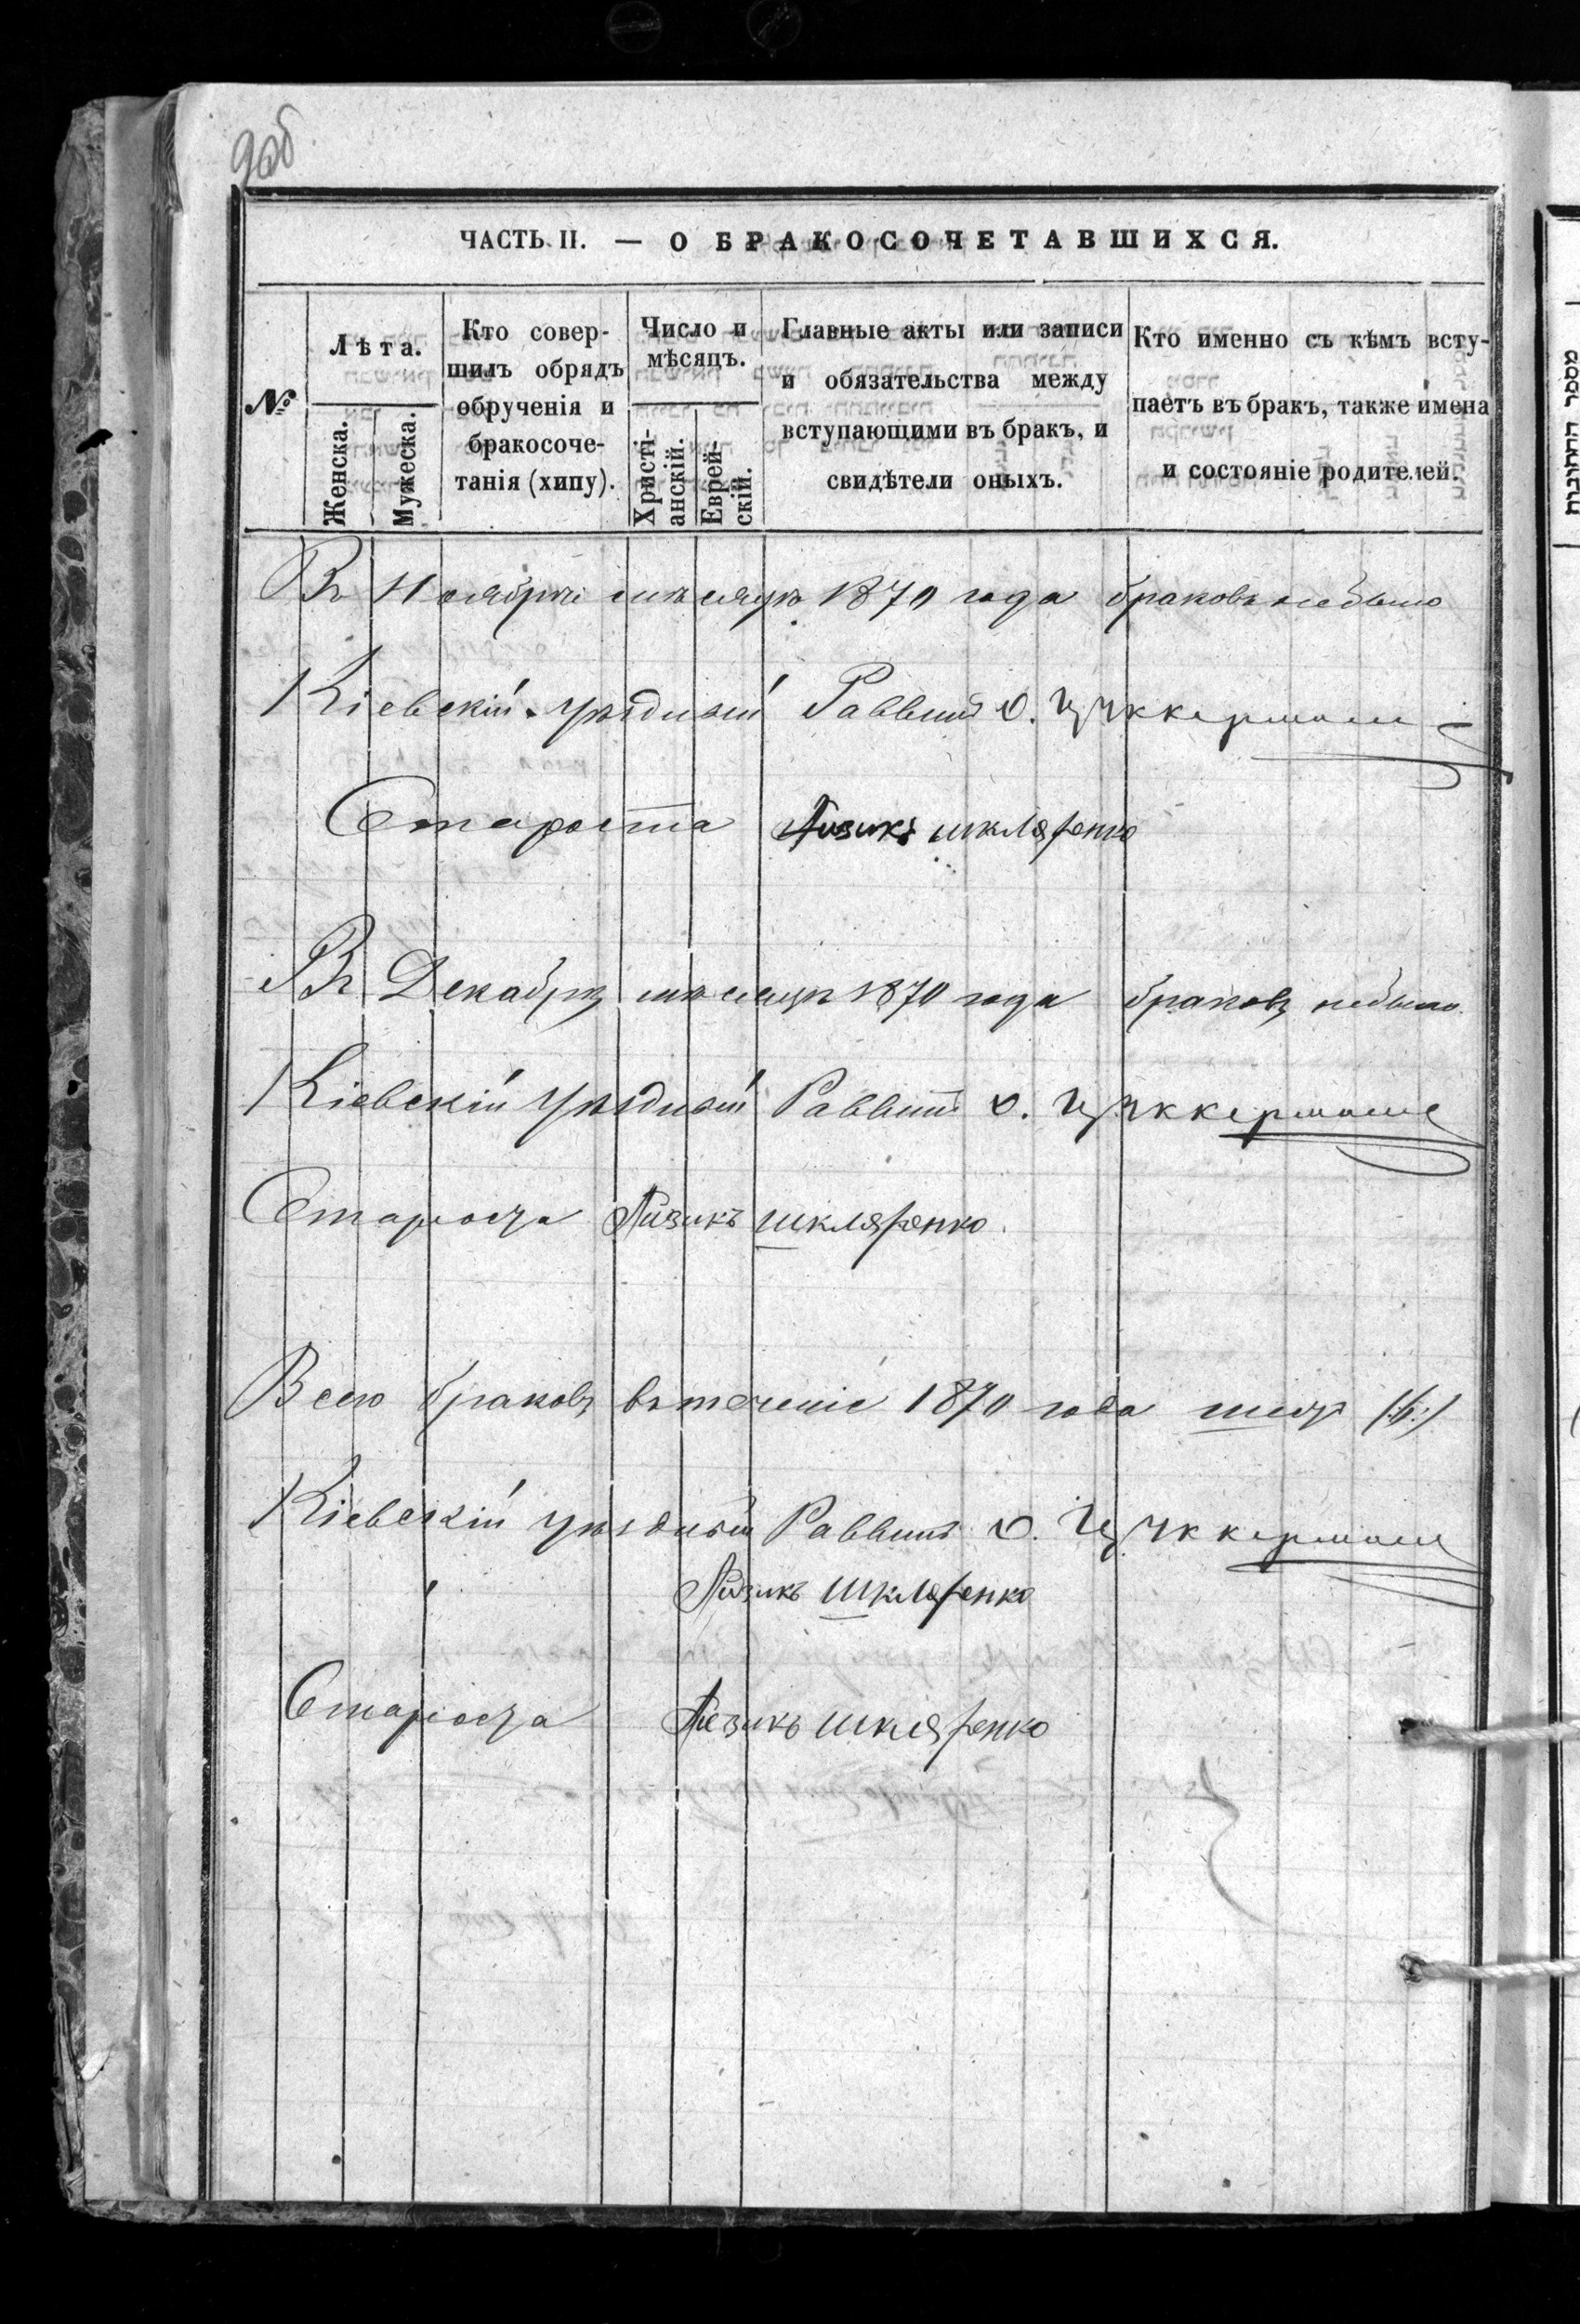 9об
ЧАСТЬ II. — О БРАКОСОЧЕТАВШИХСЯ.
№
Лѣта.
Женска.
Мужеска.
Кто совер-
шилъ обрядъ
обрученія и
бракосоче-
танія (хипу).
Число и
мѣсяцъ.
Христі-
анскій.
Еврей-
скій.
Главные акты или записи
и обязательства между
вступающими въ бракъ, и
свидѣтели оныхъ.
Кто именно съ кѣмъ всту-
паетъ въ бракъ, также имена
и состояніе родителей.
Въ Ноябрѣ мѣсяцѣ 1870 года браковъ небыло
Кіевскій уѣздный Раввинъ О. Цуккерманъ
Староста Айзикъ шкляренко
Въ Декабрѣ мѣсяцѣ 1870 года браковъ небыло.
Кіевскій уѣздный Раввинъ О. Цуккерманъ
Староста Айзикъ шкляренко.
Всего браковъ втеченіе 1870 года шесть (:6:)
Кіевскій уѣздный Раввинъ О. Цуккерманъ
Айзикъ шкляренко
Староста Айзикъ шкляренко